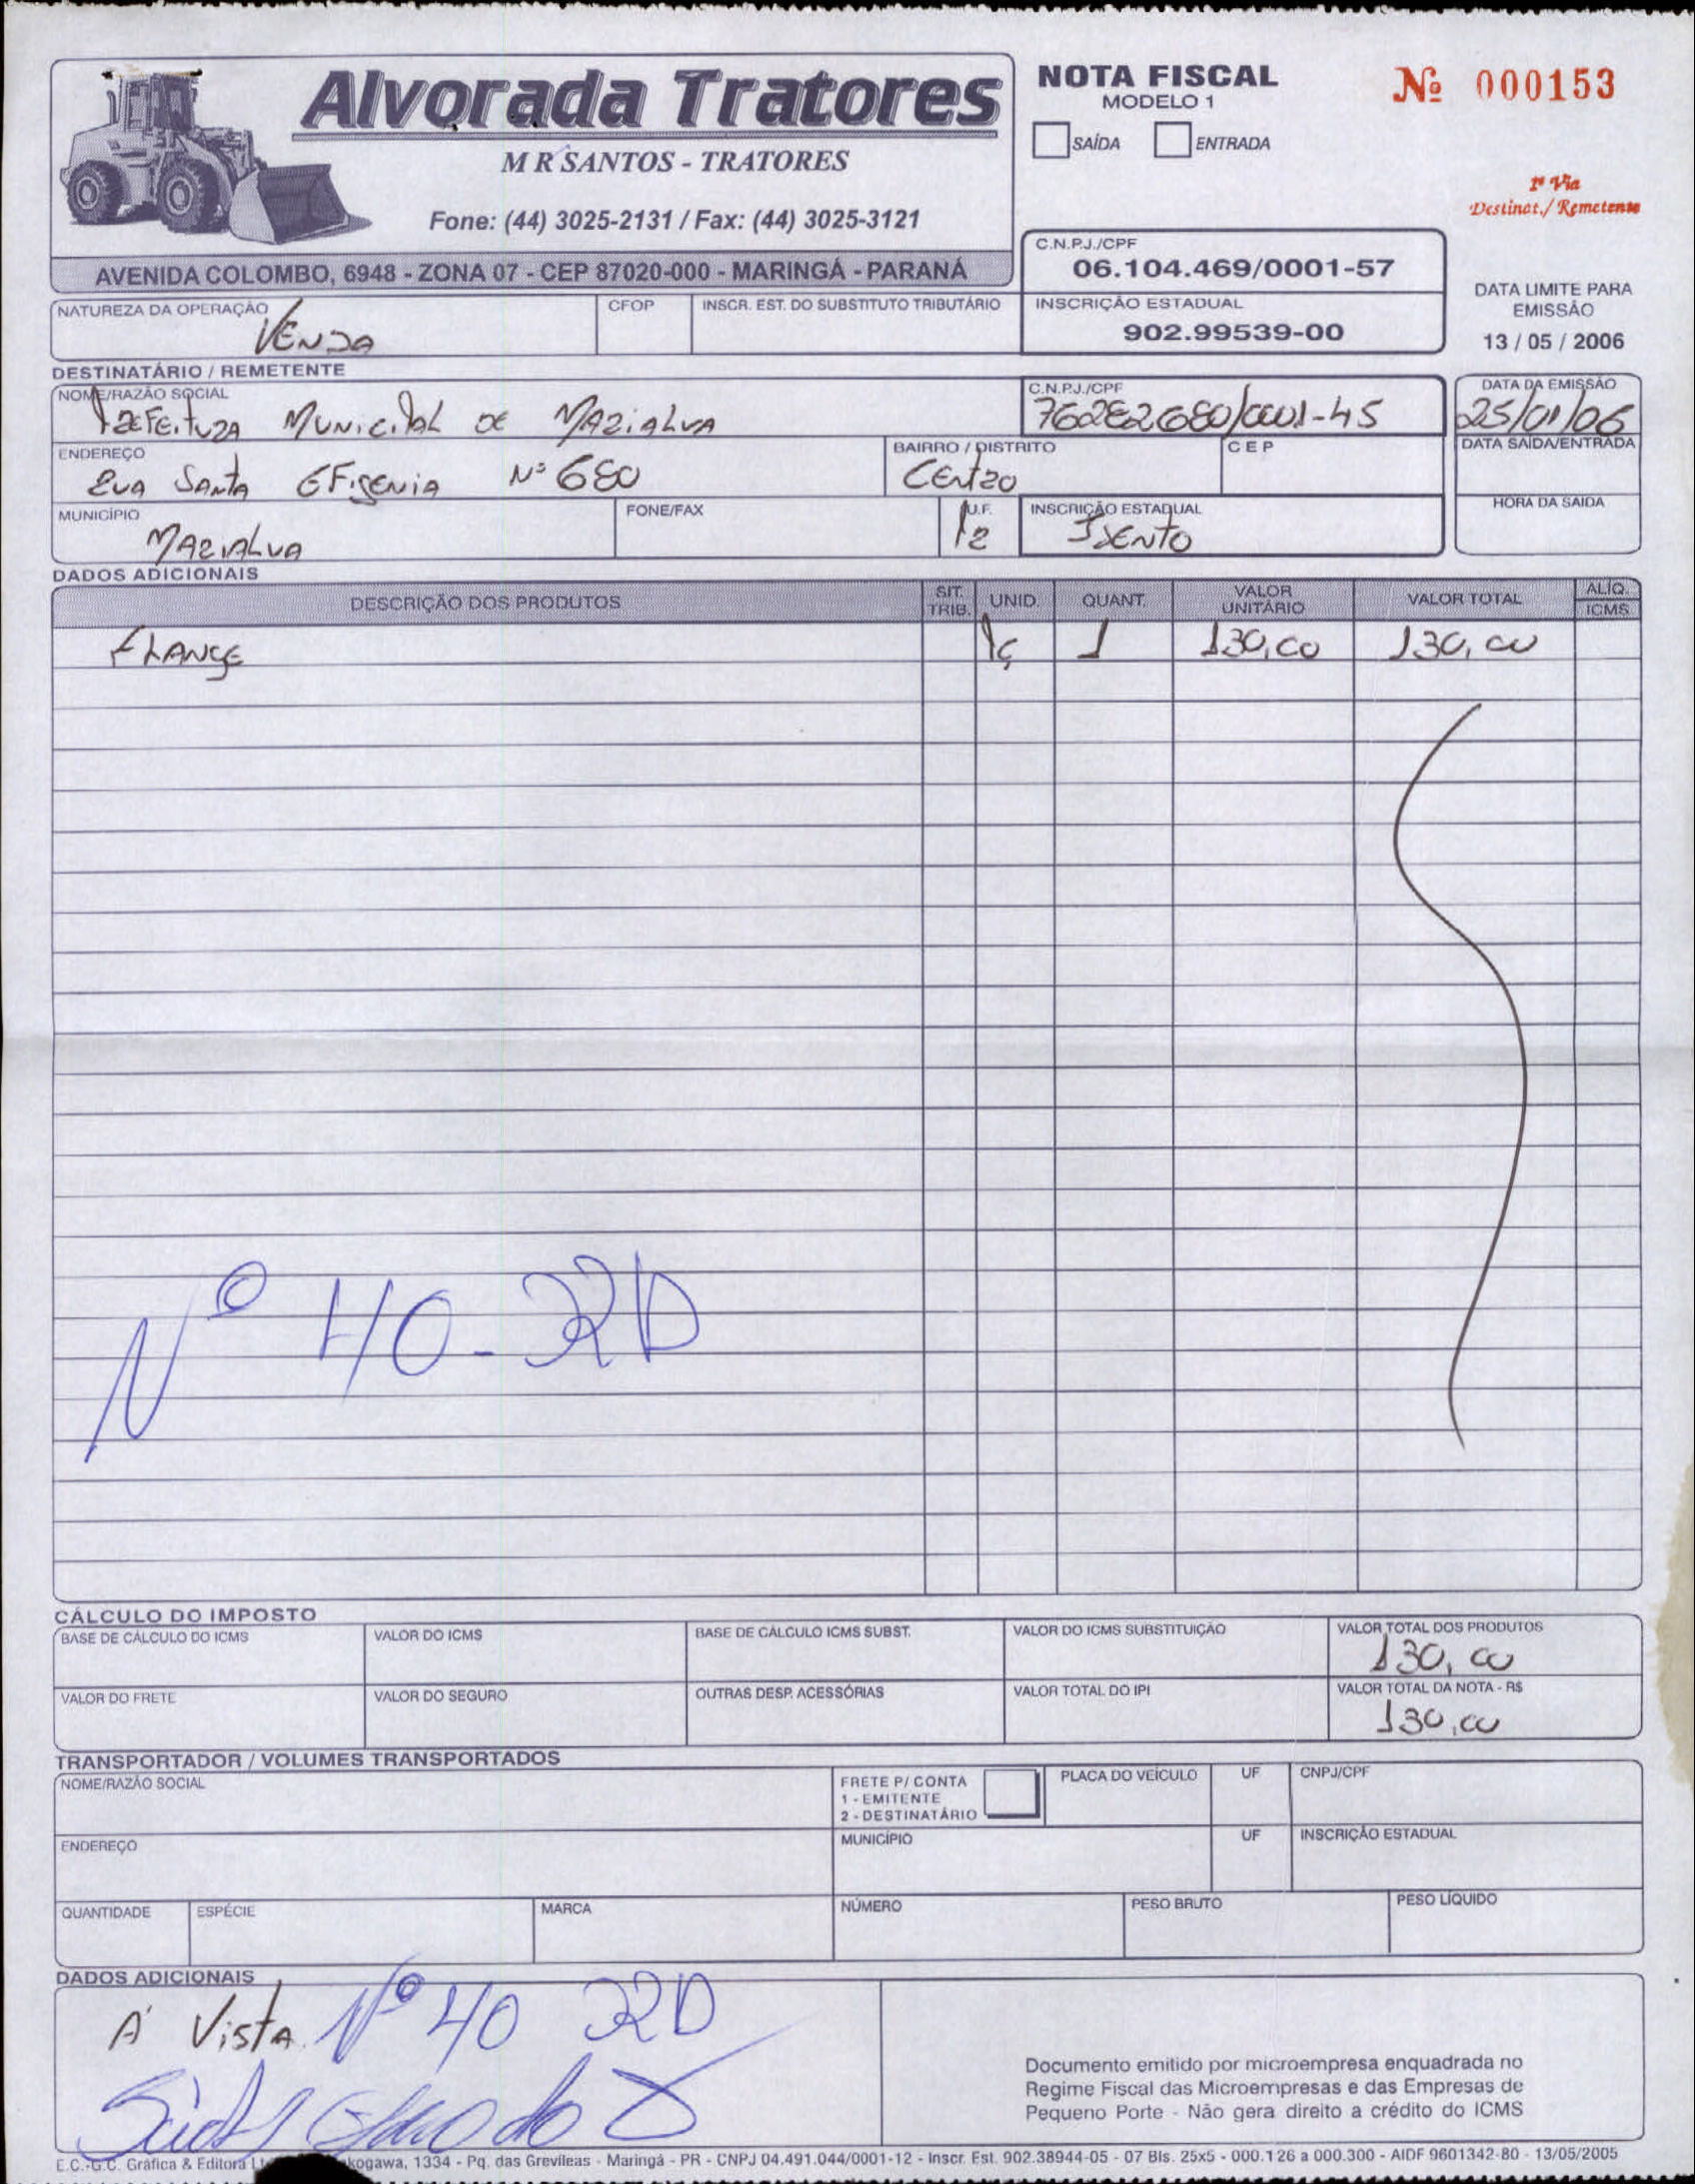 Alvorada Tratores
M R SANTOS - TRATORES
Fone: (44) 3025-2131 / Fax: (44) 3025-3121
AVENIDA COLOMBO, 6948 - ZONA 07 - CEP 87020-000 - MARINGÁ - PARANÁ
NOTA FISCAL
MODELO 1
SAÍDA ENTRADA
Nº 000153
1ª Via
Destinat./ Remetente
C.N.P.J./CPF
06.104.469/0001-57
INSCRIÇÃO ESTADUAL
902.99539-00
DATA LIMITE PARA
EMISSÃO
13 / 05 / 2006
NATUREZA DA OPERAÇÃO CFOP INSCR. EST. DO SUBSTITUTO TRIBUTÁRIO
VENDA
DESTINATÁRIO / REMETENTE
NOME/RAZÃO SOCIAL C.N.P.J./CPF DATA DA EMISSÃO
PREFEITURA MUNICIPAL DE MARIALVA 76282680/0001-45 25/01/06
ENDEREÇO BAIRRO / DISTRITO CEP DATA SAÍDA/ENTRADA
RUA SANTA EFIGENIA Nº 680 CENTRO
MUNICÍPIO FONE/FAX U.F. INSCRIÇÃO ESTADUAL HORA DA SAIDA
MARIALVA PR ISENTO
DADOS ADICIONAIS
DESCRIÇÃO DOS PRODUTOS SIT. TRIB. UNID. QUANT. VALOR UNITÁRIO VALOR TOTAL ALÍQ. ICMS
FLANGE PÇ 1 130,00 130,00
Nº 40-RD
CÁLCULO DO IMPOSTO
BASE DE CÁLCULO DO ICMS VALOR DO ICMS BASE DE CÁLCULO ICMS SUBST. VALOR DO ICMS SUBSTITUIÇÃO VALOR TOTAL DOS PRODUTOS
130,00
VALOR DO FRETE VALOR DO SEGURO OUTRAS DESP. ACESSÓRIAS VALOR TOTAL DO IPI VALOR TOTAL DA NOTA - R$
130,00
TRANSPORTADOR / VOLUMES TRANSPORTADOS
NOME/RAZÃO SOCIAL FRETE P/ CONTA PLACA DO VEÍCULO UF CNPJ/CPF
1 - EMITENTE
2 - DESTINATÁRIO
ENDEREÇO MUNICÍPIO UF INSCRIÇÃO ESTADUAL
QUANTIDADE ESPÉCIE MARCA NÚMERO PESO BRUTO PESO LÍQUIDO
DADOS ADICIONAIS
A' Vista. Nº 40 RD
Documento emitido por microempresa enquadrada no
Regime Fiscal das Microempresas e das Empresas de
Pequeno Porte - Não gera direito a crédito do ICMS
E.C.-G.C. Gráfica & Editora kogawa, 1334 - Pq. das Grevíleas - Maringá - PR - CNPJ 04.491.044/0001-12 - Inscr. Est. 902.38944-05 - 07 Bls. 25x5 - 000.126 a 000.300 - AIDF 9601342-80 - 13/05/2005